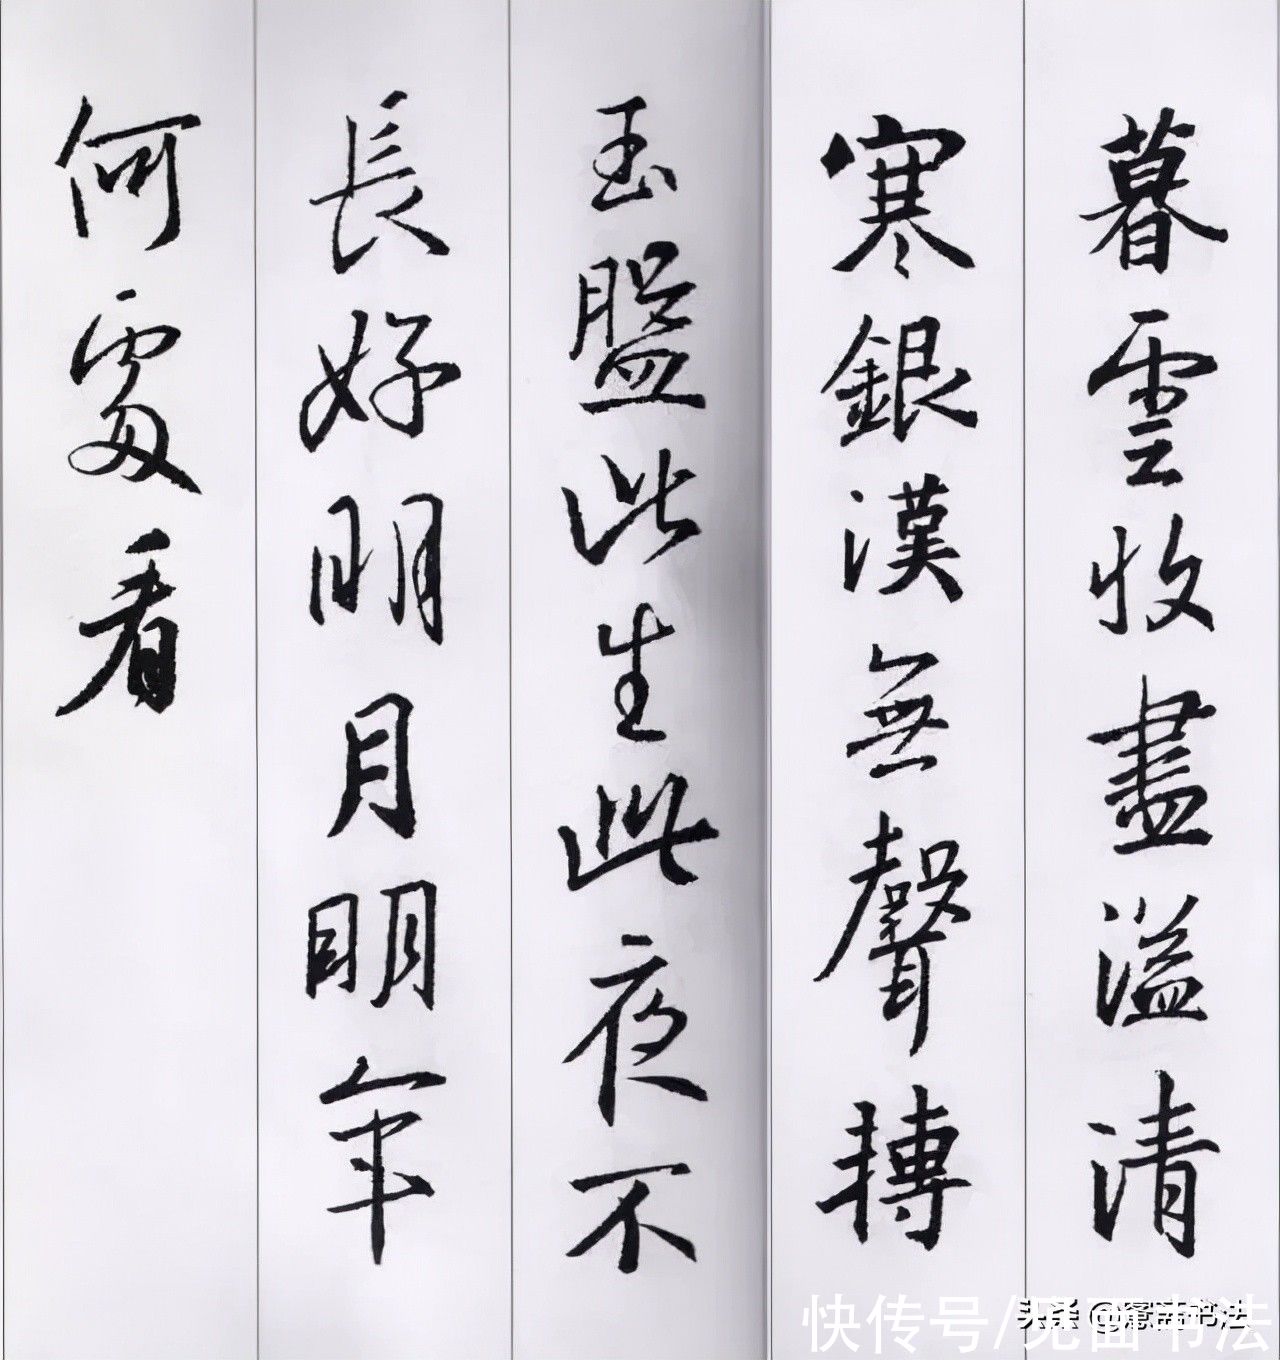 暮雲收盡溢清
寒銀漢無聲轉
玉盤此生此夜不
長好明月明年
何處看
头条 @书法
快传号/见面书法